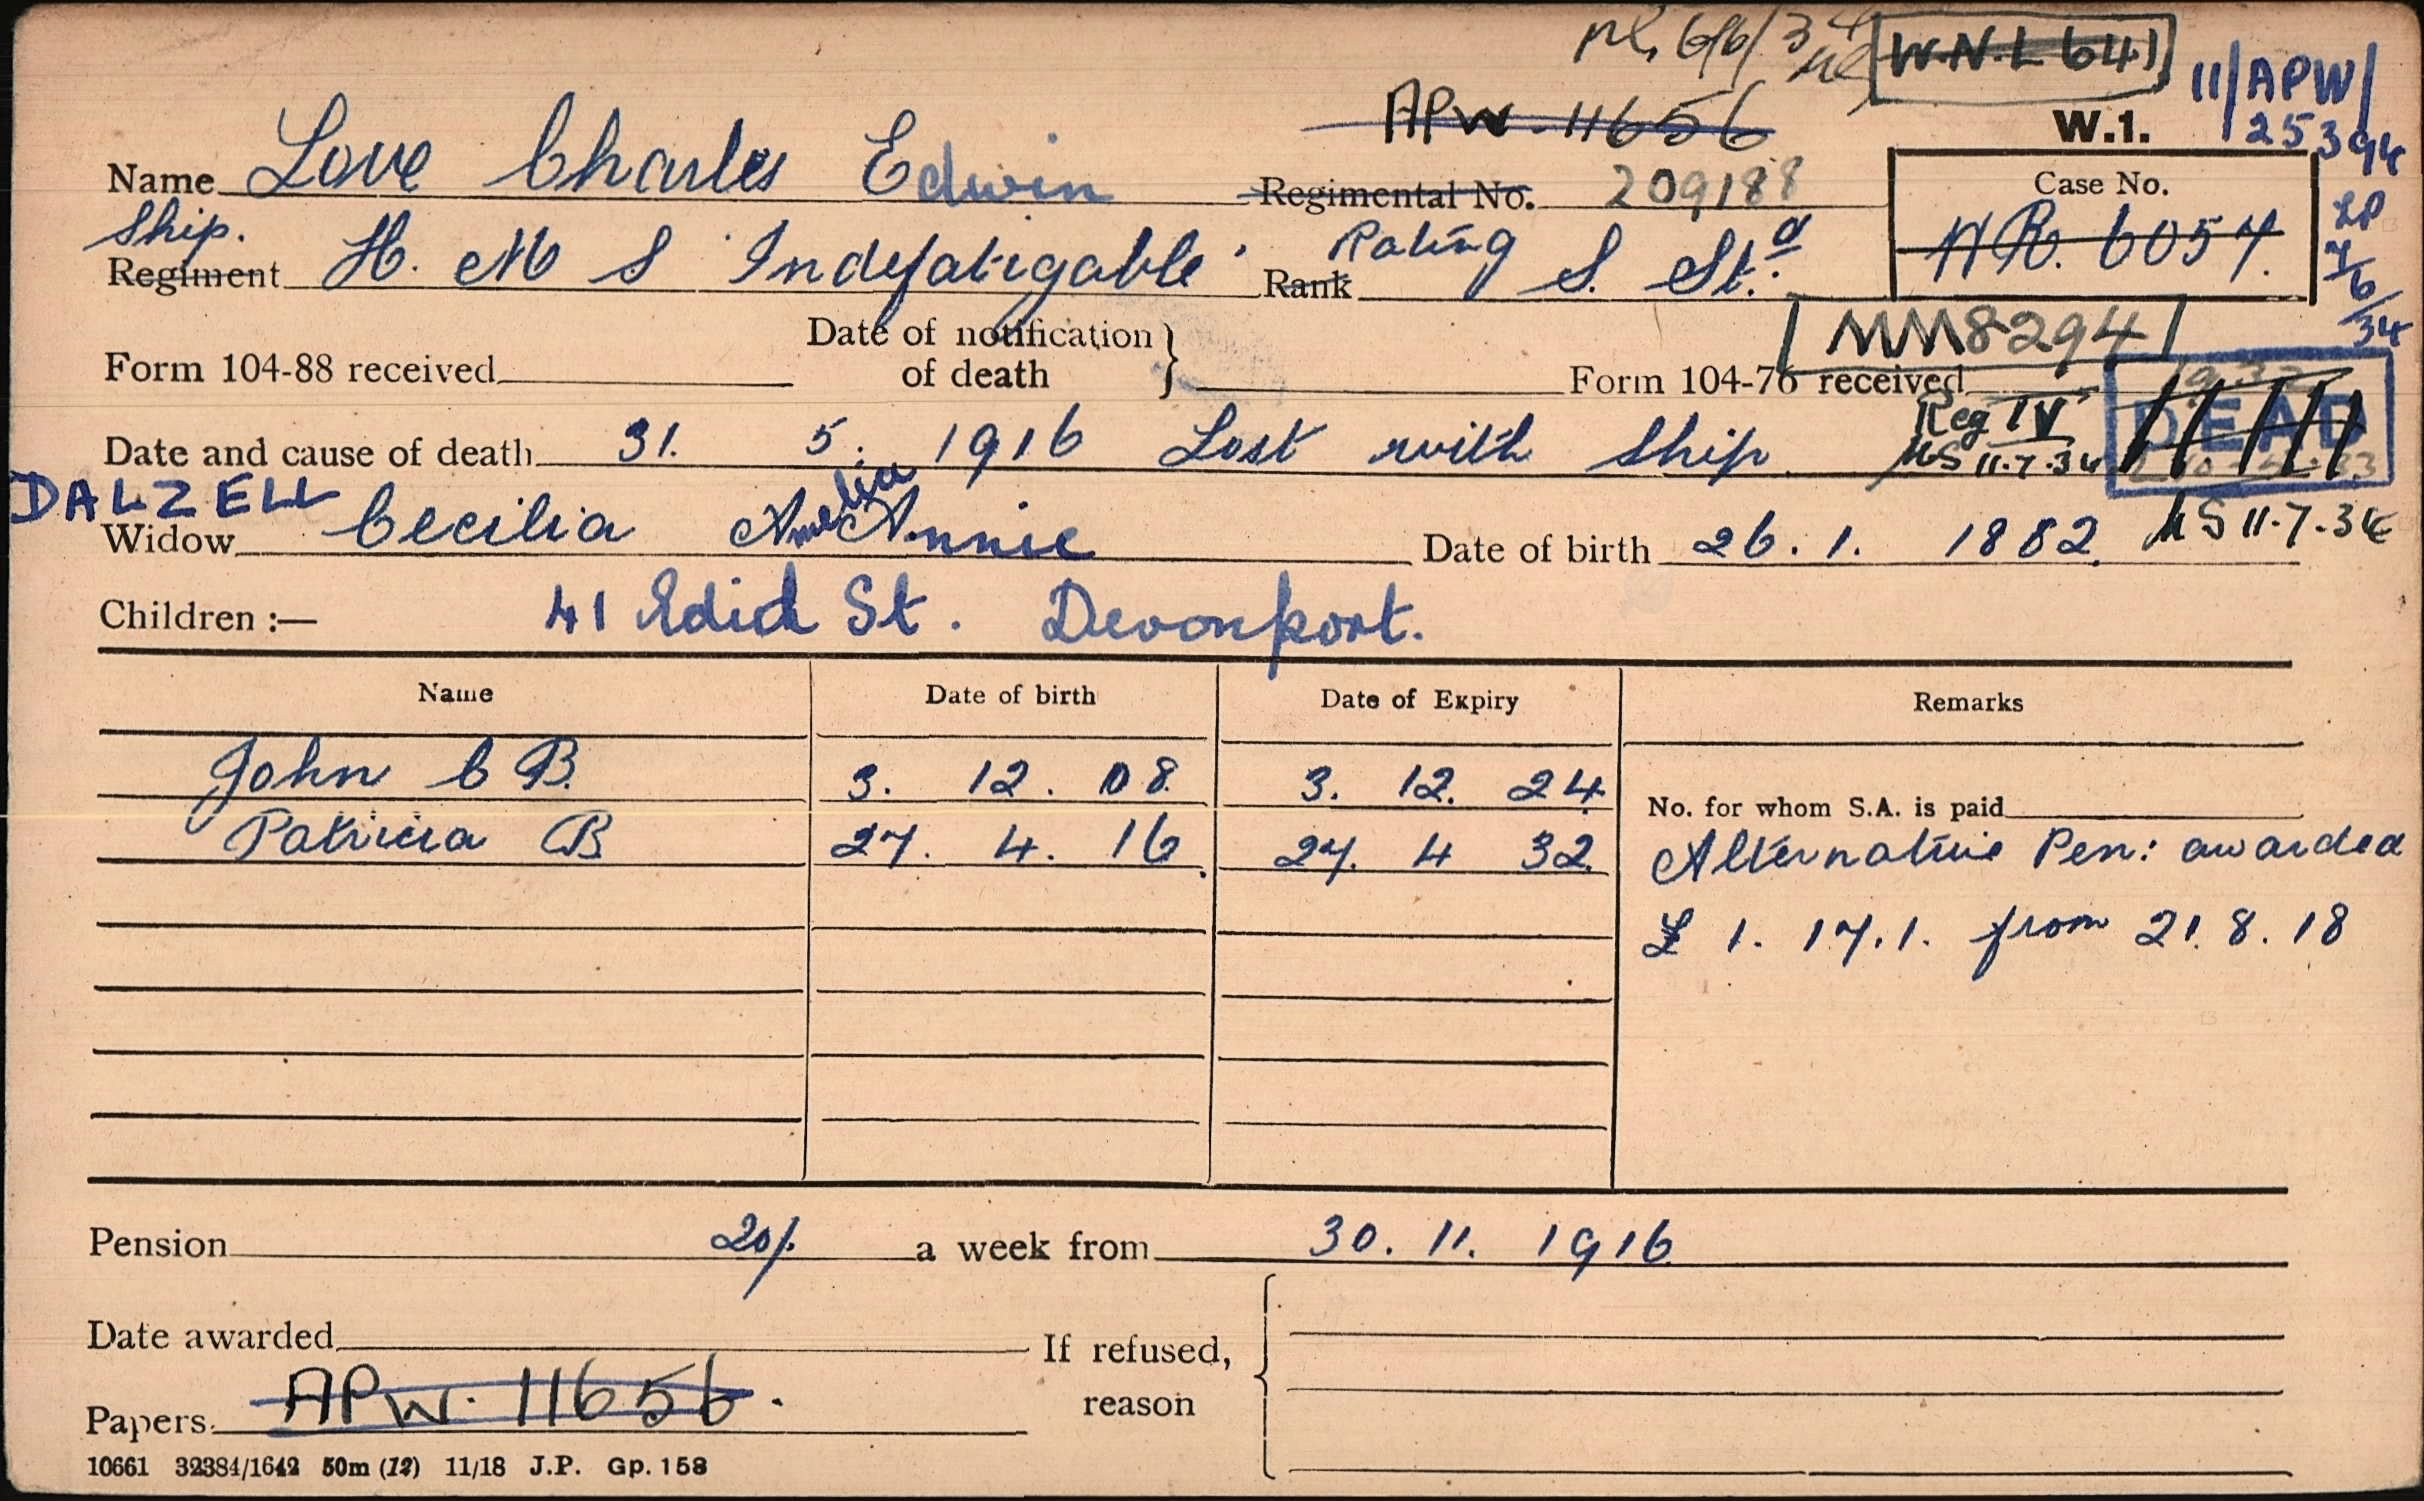 6/6/34 W.N.L 641 11/APW/
APW. 11656 W.1. 25394
Name Love Charles Edwin Regimental No. 209188 Case No.
Ship. Regiment H. M S Indefatigable. Rating Rank S. St.d WR. 6057. 7/6/34
MM8294
Date of notification
Form 104-88 received of death Form 104-76 received
Reg IV DEAD
Date and cause of death 31. 5. 1916 Lost with Ship. MS 11.7.34
DALZELL Amelia
Widow Cecilia A. Annie Date of birth 26. 1. 1882. MS 11.7.34
Children :— 41 St. Devonport.
Name Date of birth Date of Expiry Remarks
John C B. 3. 12. 08. 3. 12. 24.
No. for whom S.A. is paid
Patricia B 27. 4. 16. 27. 4 32. Alternative Pen: awarded
£ 1. 17. 1. from 21. 8. 18
Pension 20/. a week from 30. 11. 1916.
Date awarded If refused,
reason
Papers. APW. 11656.
10661 32384/1642 50m (12) 11/18 J.P. Gp. 158